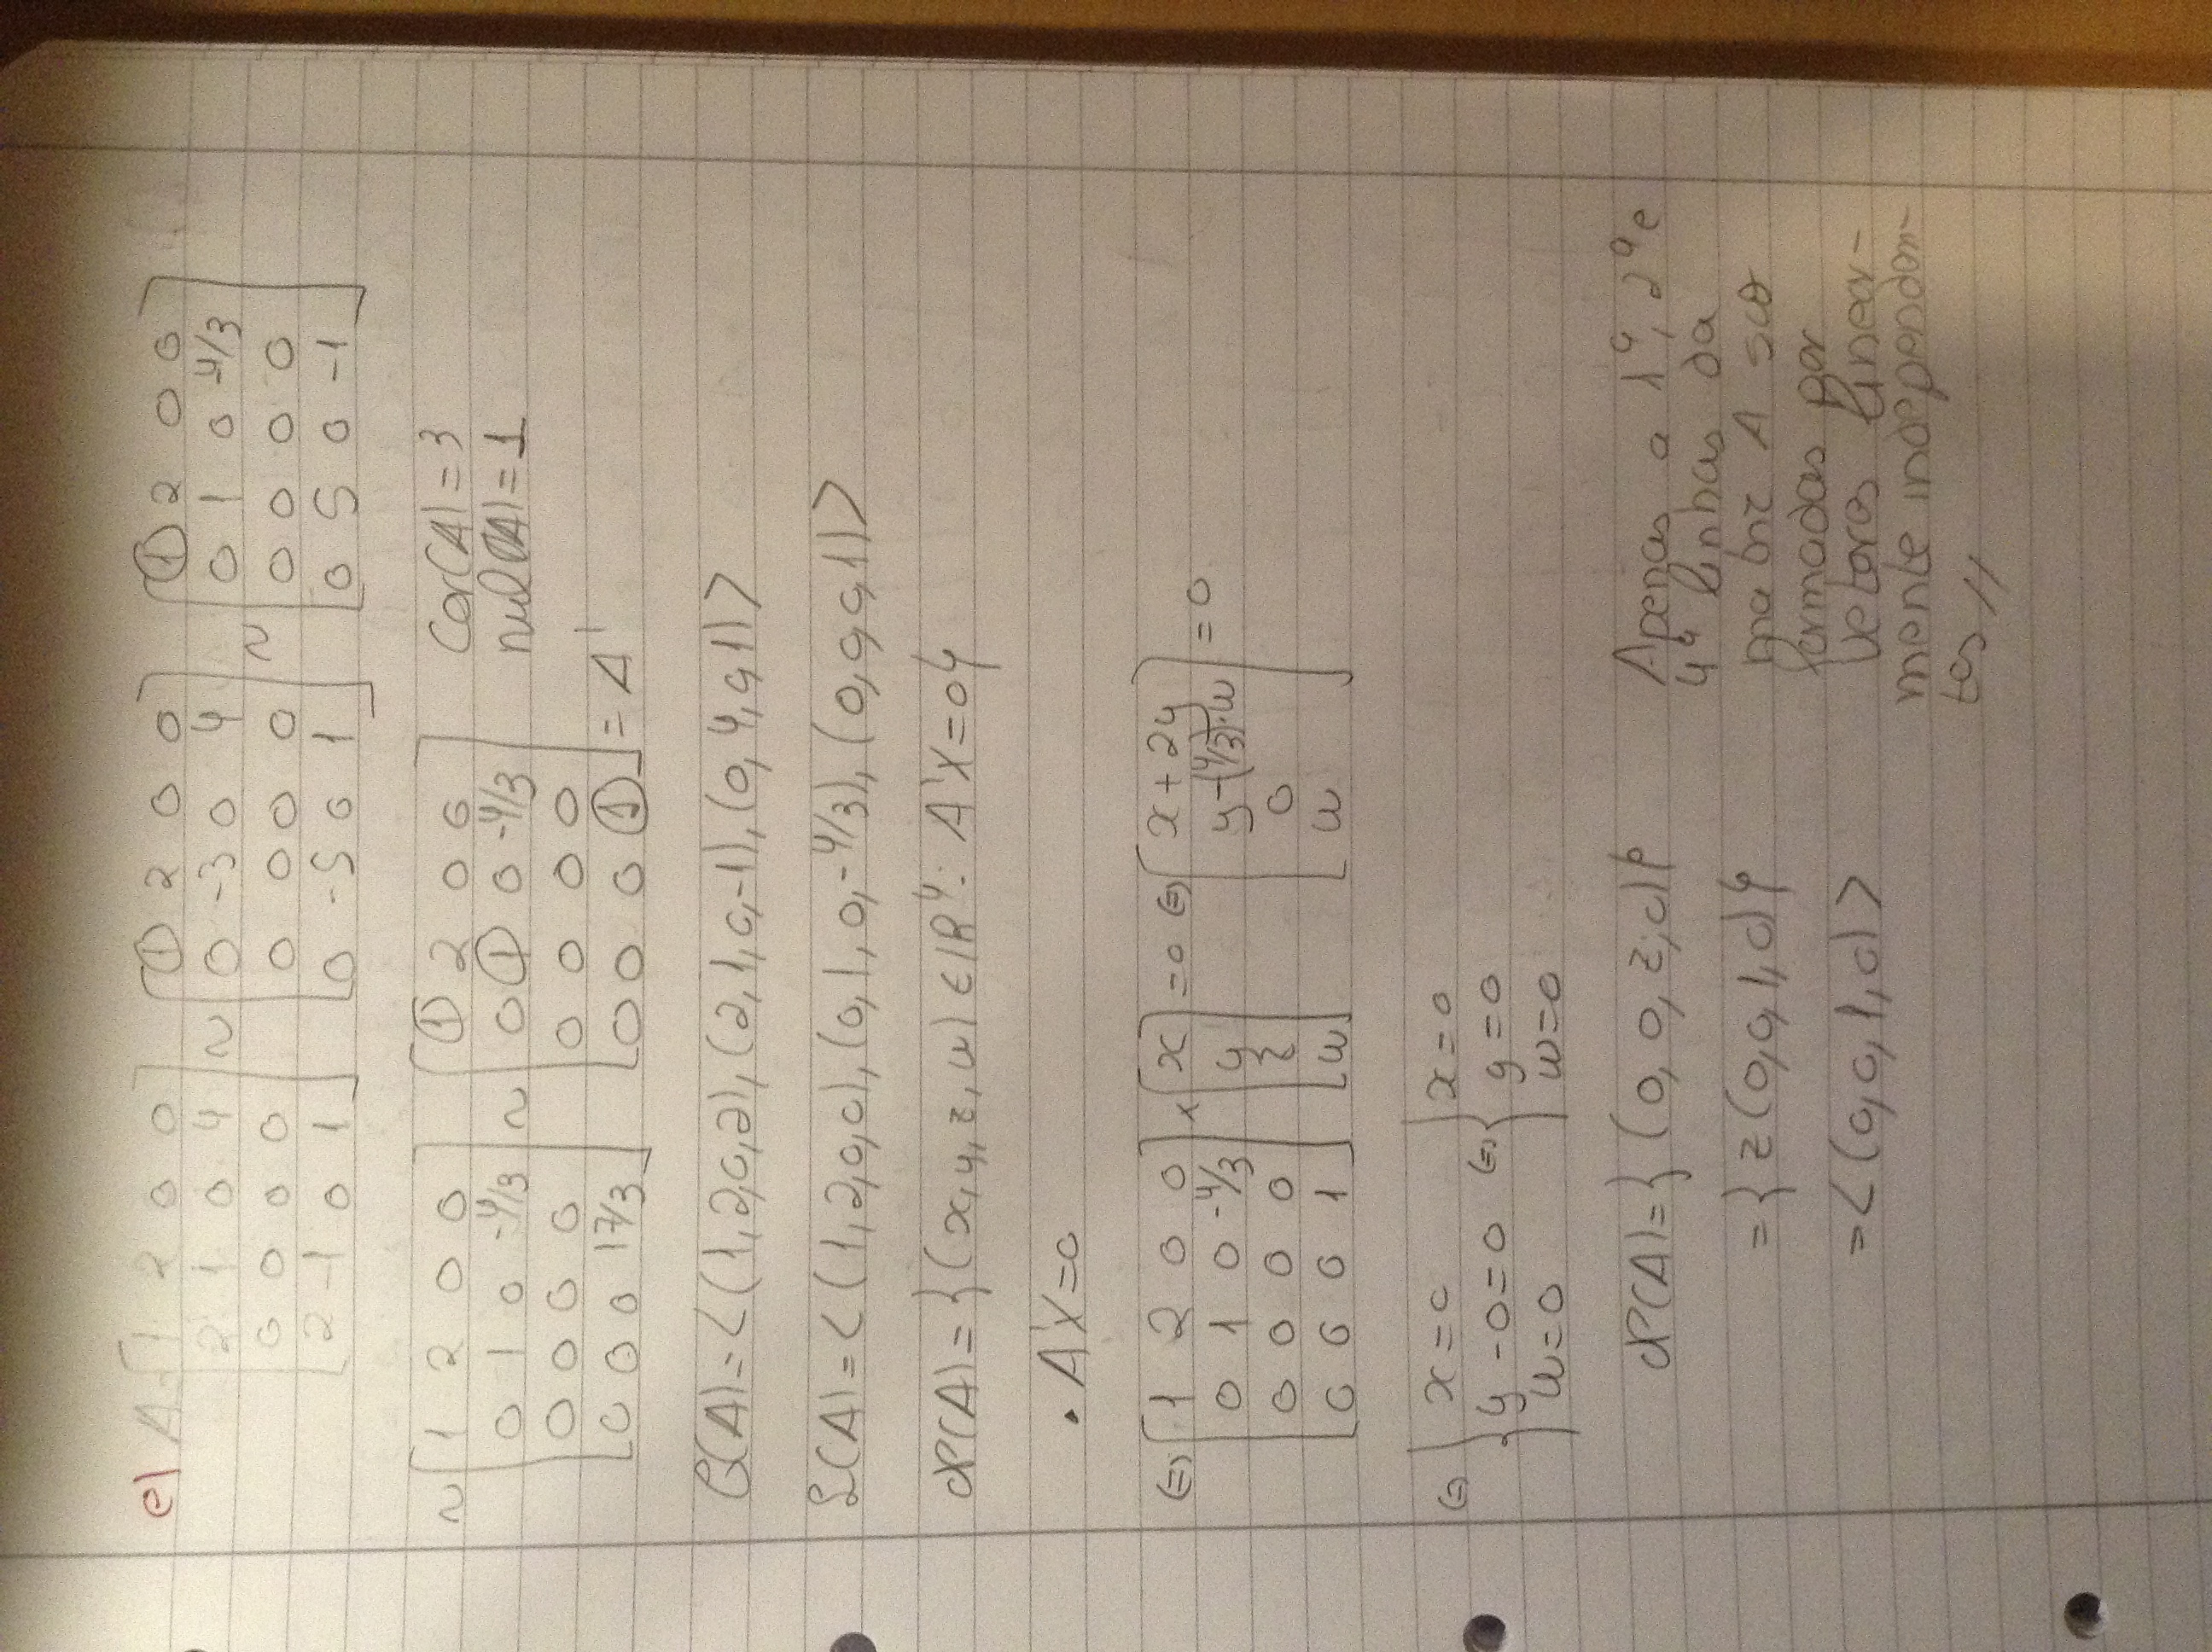 e) A = [1 2 0 0; 2 1 0 4; 0 0 0 0; 2 -1 0 1] ~ [① 2 0 0; 0 -3 0 4; 0 0 0 0; 0 -5 0 1] ~ [① 2 0 0; 0 1 0 -4/3; 0 0 0 0; 0 5 0 -1]
~ [1 2 0 0; 0 1 0 -4/3; 0 0 0 0; 0 0 0 17/3] ~ [① 2 0 0; 0 ① 0 -4/3; 0 0 0 0; 0 0 0 ①] = A'
Car(A) = 3
nul(A) = 1
C(A) = <(1,2,0,2), (2,1,0,-1), (0,4,0,1)>
L(A) = <(1,2,0,0), (0,1,0,-4/3), (0,0,0,1)>
N(A) = {(x,y,z,w) ∈ IR⁴: A'X=0}
• A'X=0
⇔ [1 2 0 0; 0 1 0 -4/3; 0 0 0 0; 0 0 0 1] × [x; y; z; w] = 0 ⇔ [x+2y; y-(4/3)·w; 0; w] = 0
⇔ { x=0; y-0=0; w=0 ⇔ { x=0; y=0; w=0
N(A) = {(0,0,z,0)}
= {z(0,0,1,0)}
= <(0,0,1,0)>
Apenas a 1ª, 2ª e
4ª linhas da
matriz A são
formadas por
vetores linear-
mente independen-
tes //